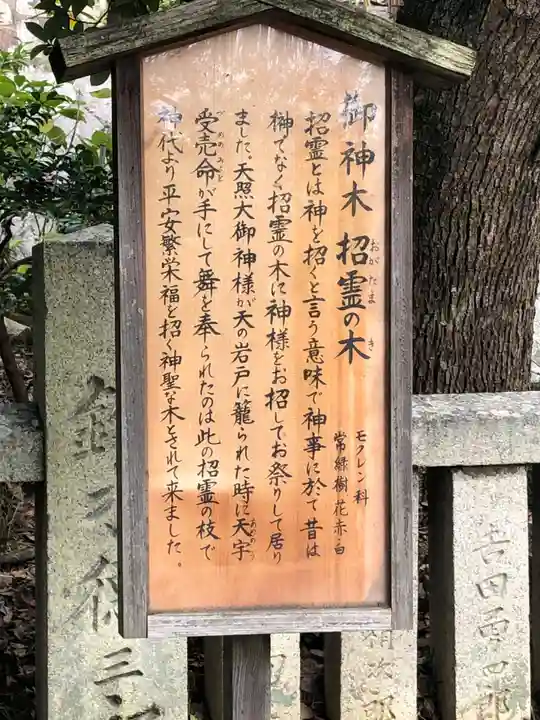 御神木 招霊の木
おがたま き
モクレン科
常緑樹花赤白
招霊とは神を招くと言う意味で神事に於て昔は
榊でなく招霊の木に神様をお招してお祭りして居り
ました。天照大御神様が天の岩戸に籠られた時に天宇
あめのう
受売命が手にして舞を奉られたのは此の招霊の枝で
ずめのみこと
神代より平安繁栄福を招く神聖な木とされて来ました。
吉田勇四郎
次郎